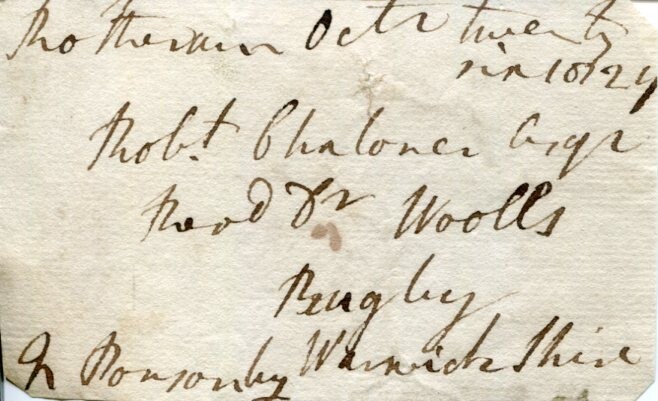 Rotheram Octr twenty
six 1824
Robt. Chaloner Esqr
Revd Dr Woolls
Rugby
Warwickshire
Ponsonby